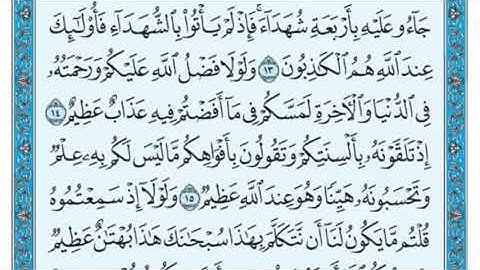 جَآءُو عَلَيْهِ بِأَرْبَعَةِ شُهَدَآءَ ۚ فَإِذْ لَمْ يَأْتُوا۟ بِٱلشُّهَدَآءِ فَأُو۟لَـٰٓئِكَ
عِندَ ٱللَّهِ هُمُ ٱلْكَـٰذِبُونَ ١٣ وَلَوْلَا فَضْلُ ٱللَّهِ عَلَيْكُمْ وَرَحْمَتُهُۥ
فِى ٱلدُّنْيَا وَٱلْـَٔاخِرَةِ لَمَسَّكُمْ فِى مَآ أَفَضْتُمْ فِيهِ عَذَابٌ عَظِيمٌ ١٤
إِذْ تَلَقَّوْنَهُۥ بِأَلْسِنَتِكُمْ وَتَقُولُونَ بِأَفْوَاهِكُم مَّا لَيْسَ لَكُم بِهِۦ عِلْمٌ
وَتَحْسَبُونَهُۥ هَيِّنًا وَهُوَ عِندَ ٱللَّهِ عَظِيمٌ ١٥ وَلَوْلَآ إِذْ سَمِعْتُمُوهُ
قُلْتُم مَّا يَكُونُ لَنَآ أَن نَّتَكَلَّمَ بِهَـٰذَا سُبْحَـٰنَكَ هَـٰذَا بُهْتَـٰنٌ عَظِيمٌ